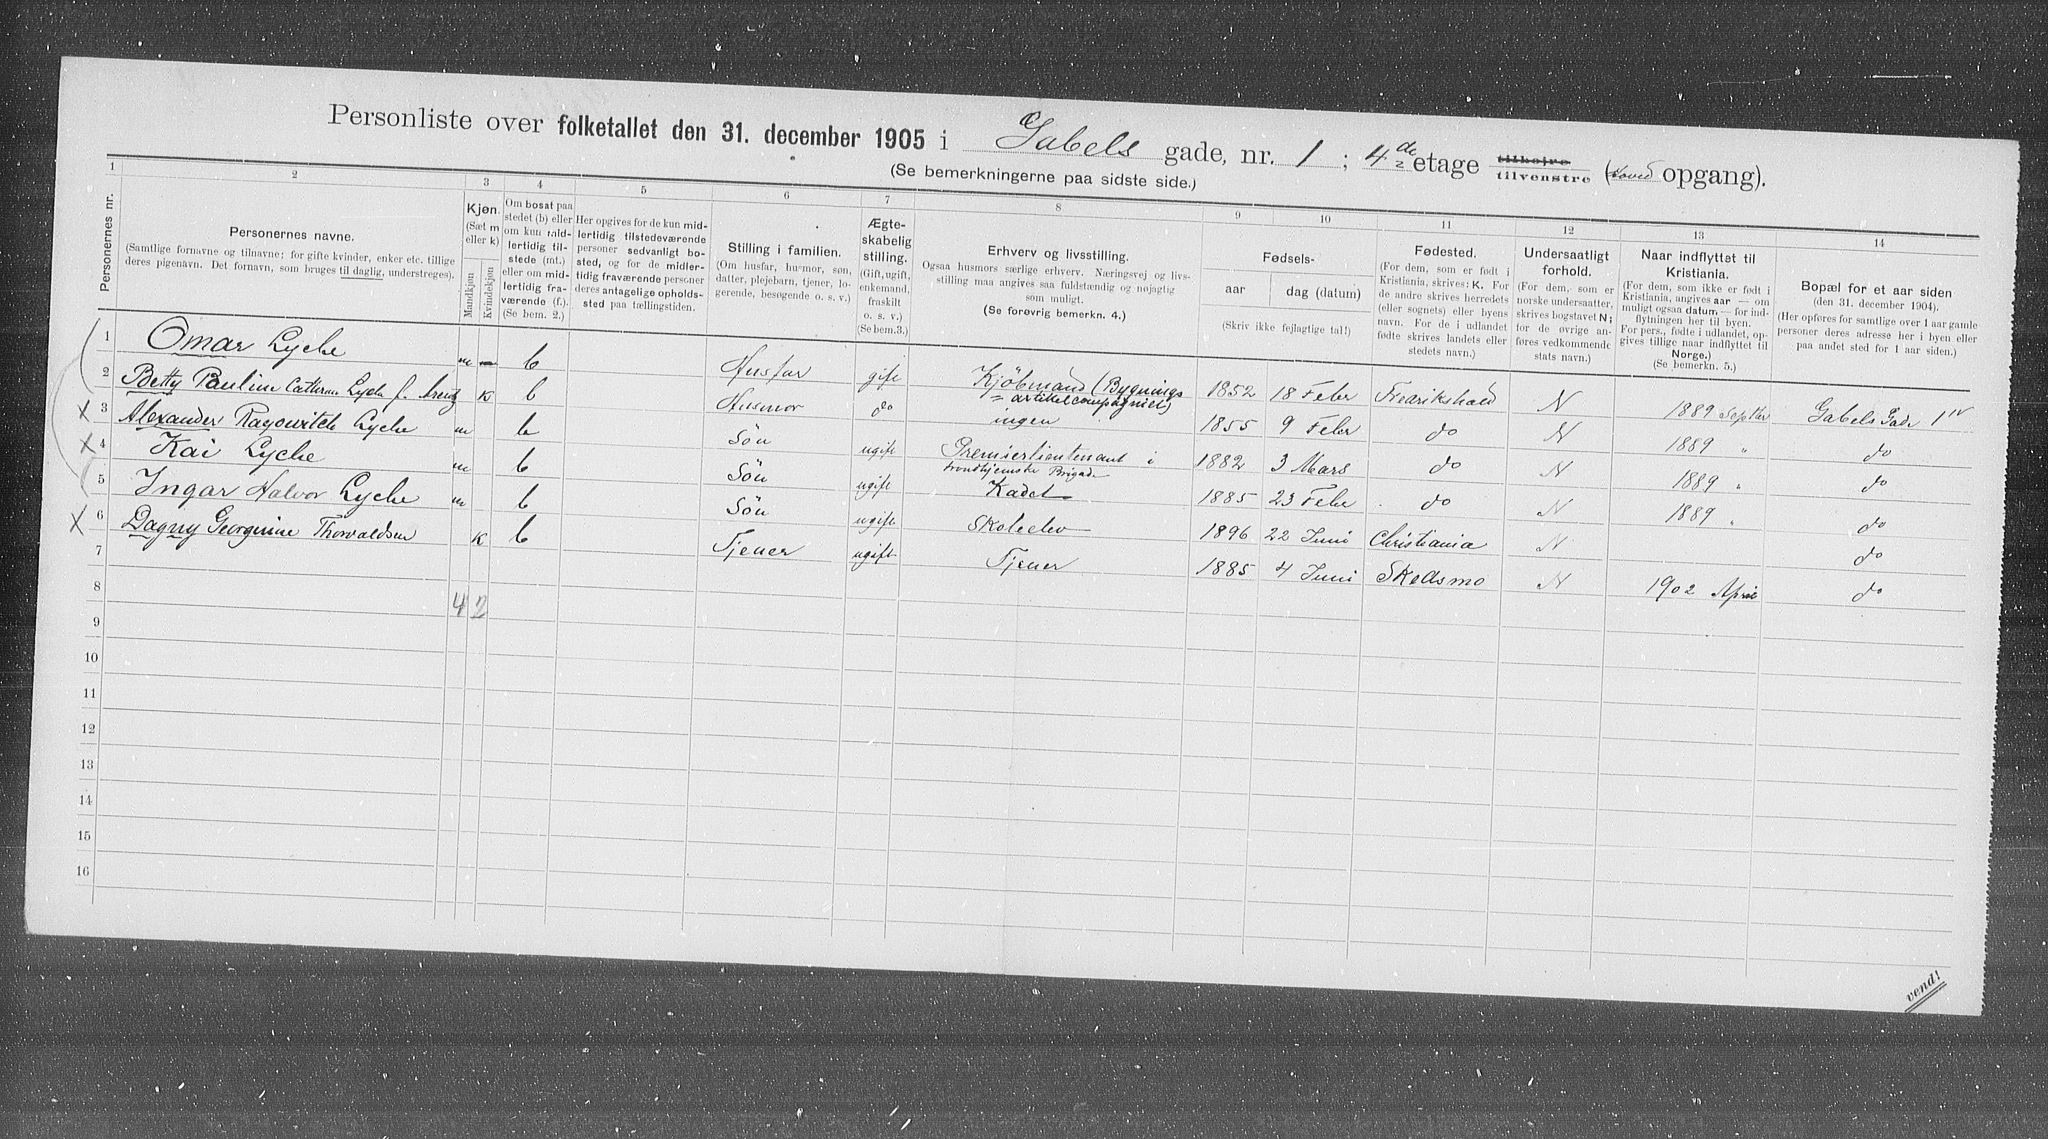 Personliste over folketallet den 31. december 1905 i Gabels gade, nr. 1 ; 4de etage tilhøjre tilvenstre (hoved opgang).
(Se bemerkningerne paa sidste side.)
1 2 3 4 5 6 7 8 9 10 11 12 13 14
Personernes nr.
Personernes navne.
(Samtlige fornavne og tilnavne; for gifte kvinder, enker etc. tillige
deres pigenavn. Det fornavn, som bruges til daglig, understreges).
Kjøn.
(Sæt m
eller k)
Mandkjøn
Kvindekjøn
Om bosat paa
stedet (b) eller
om kun midlertidig tilstede (mt.)
eller om midlertidig fraværende (f.).
(Se bem. 2.)
Her opgives for de kun midlertidig tilstedeværende
personer sedvanligt bosted, og for de midlertidig fraværende personer
deres antagelige opholdssted paa tællingstiden.
Stilling i familien.
(Om husfar, husmor, søn,
datter, plejebarn, tjener, logerende, besøgende o. s. v.)
Ægteskabelig
stilling.
(Gift, ugift,
enkemand,
fraskilt
o. s. v.)
(Se bem. 3.)
Erhverv og livsstilling.
Ogsaa husmors særlige erhverv. Næringsvej og livsstilling maa angives saa fuldstændig og nøjagtig
som muligt.
(Se forøvrig bemerkn. 4.)
Fødsels-
aar
dag (datum)
(Skriv ikke fejlagtige tal!)
Fødested.
(For dem, som er født i
Kristiania, skrives: K. For
de andre skrives herredets
(eller sognets) eller byens
navn. For de i udlandet
fødte skrives landets eller
stedets navn.)
Undersaatligt
forhold.
(For dem, som er
norske undersaatter,
skrives bogstavet N;
for de øvrige anføres vedkommende
stats navn.)
Naar indflyttet til
Kristiania.
(For dem, som ikke er født i
Kristiania, angives aar — om
muligt ogsaa datum — for indflytningen her til byen.
For pers., fødte i udlandet, opgives tillige naar indflyttet til
Norge.)
(Se bemerkn. 5.)
Bopæl for et aar siden
(den 31. december 1904).
(Her opføres for samtlige over 1 aar gamle
personer deres adresse her i byen eller
paa andet sted for 1 aar siden.)
1 Omar Lyche m b Husfar gift Kjöbmand (Bygnings= artikelcompagniet) 1852 18 Febr Fredrikshald N 1889 Septbr Gabels Gade 1 IV
2 Betty Pauline Cathrine Lyche f. Arentz k b Husmor do ingen 1855 9 Febr do N 1889 " do
3 Alexander Lyche m b Sön ugift Premierlieutenant i trondhjemske Brigade 1882 3 Mars do N 1889 " do
4 Kai Lyche m b Sön ugift Kadet 1885 23 Febr do N 1889 " do
5 Ingar Halvor Lyche m b Sön ugift Skoleelev 1896 22 Juni Christiania N do
6 Dagny Georgine Thorvaldsen k b Tjener ugift Tjener 1885 4 Juni Skedsmo N 1902 April do
7
8 4 2
9
10
11
12
13
14
15
16
vend!